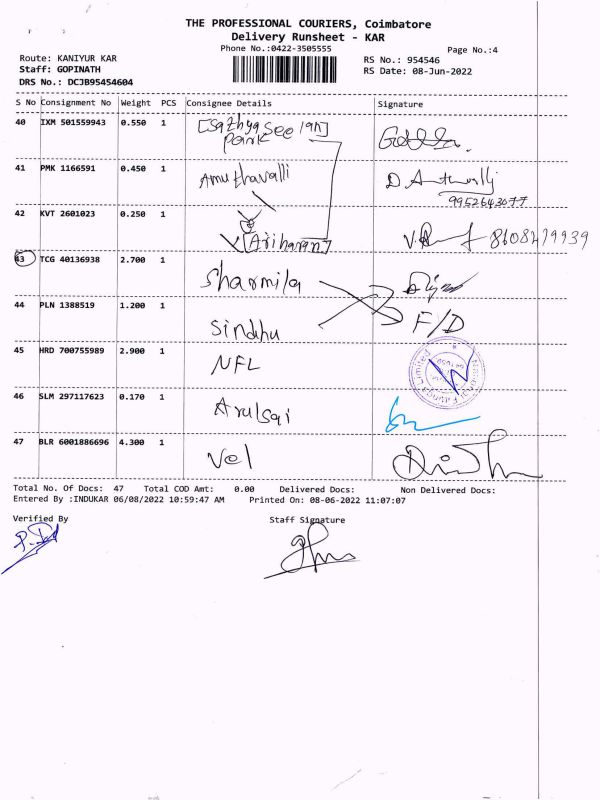 THE PROFESSIONAL COURIERS, Coimbatore
Delivery Runsheet - KAR
Phone No.:0422-3505555
Page No.:4
Route: KANIYUR KAR
RS No.: 954546
Staff: GOPINATH
RS Date: 08-Jun-2022
DRS No.: DCJB95454604
S No Consignment No Weight PCS Consignee Details Signature
40 IXM 501559943 0.550 1
41 PMK 1166591 0.450 1 Amuthavalli
9952643077
42 KVT 2601023 0.250 1 [Ariharan] 8608479939
43 TCG 40136938 2.700 1 Sharmila
44 PLN 1388519 1.200 1 Sindhu F/D
45 HRD 700755989 2.900 1 NFL
46 SLM 297117623 0.170 1 Arulsai
47 BLR 6001886696 4.300 1 Vel
Total No. Of Docs: 47 Total COD Amt: 0.00 Delivered Docs: Non Delivered Docs:
Entered By :INDUKAR 06/08/2022 10:59:47 AM Printed On: 08-06-2022 11:07:07
Verified By Staff Signature